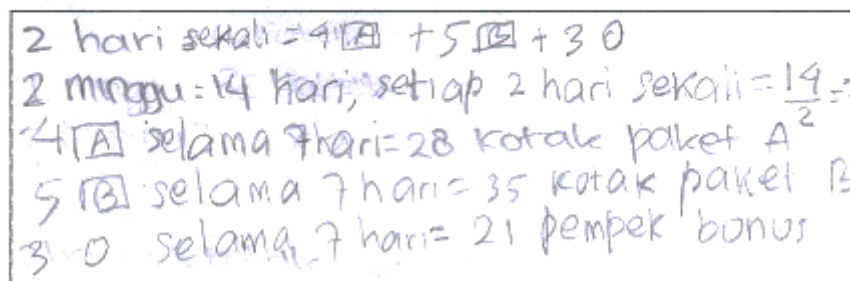 2 hari sekali = 4 A + 5 B + 3 O
2 minggu = 14 hari, setiap 2 hari sekali = 14/2 =
4 A selama 7 hari = 28 kotak paket A
5 B selama 7 hari = 35 kotak paket B
3 O selama 7 hari = 21 pempek bonus